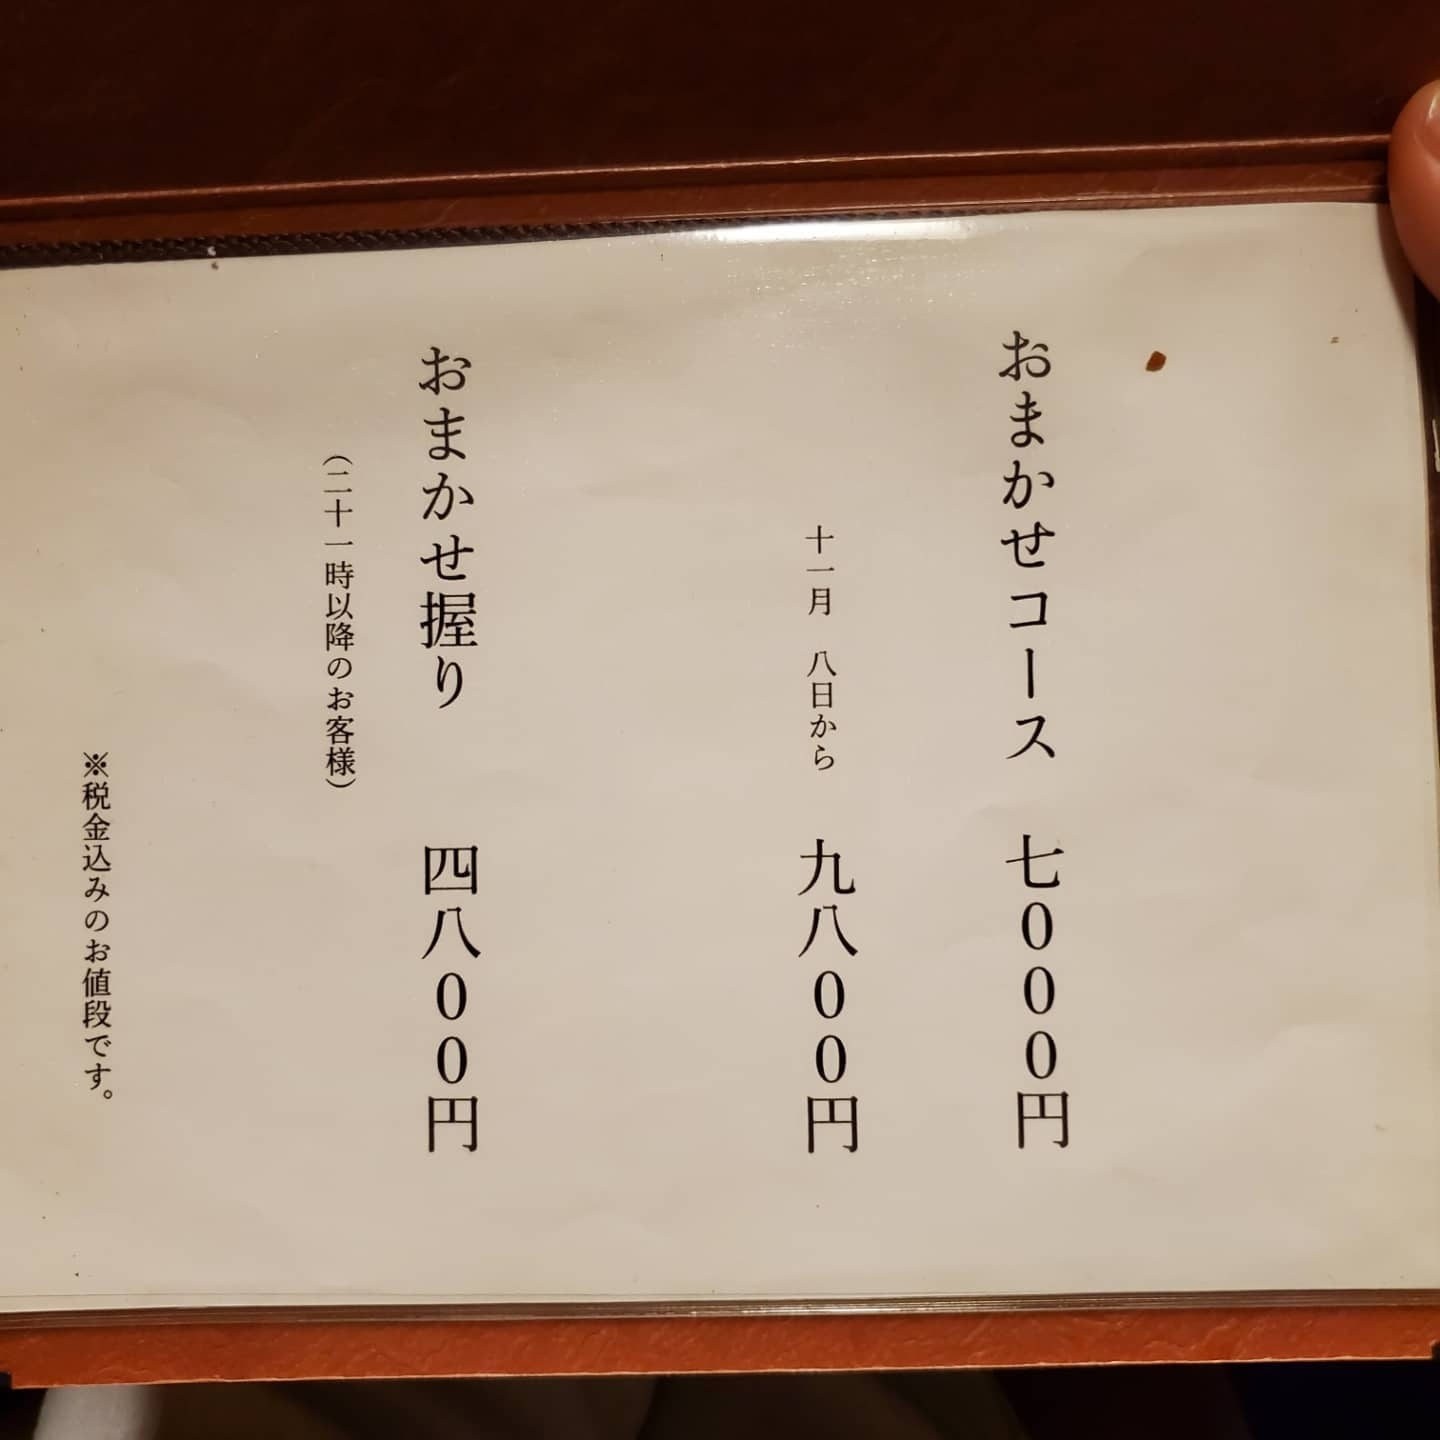 おまかせコース　七０００円
十一月　八日から　九八００円
おまかせ握り　四八００円
（二十一時以降のお客様）
※税金込みのお値段です。